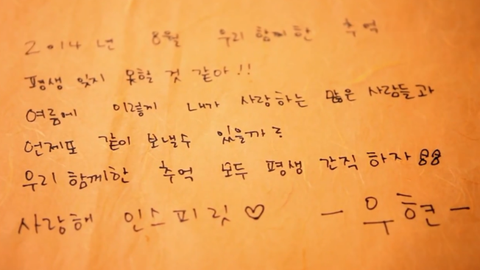 2014년 8월 우리 함께한 추억
평생 잊지 못할 것 같아!!
여름에 이렇게 내가 사랑하는 많은 사람들과
언제또 같이 보낼수 있을까?
우리 함께한 추억 모두 평생 간직 하자 88
사랑해 인스피릿♡ -우현-